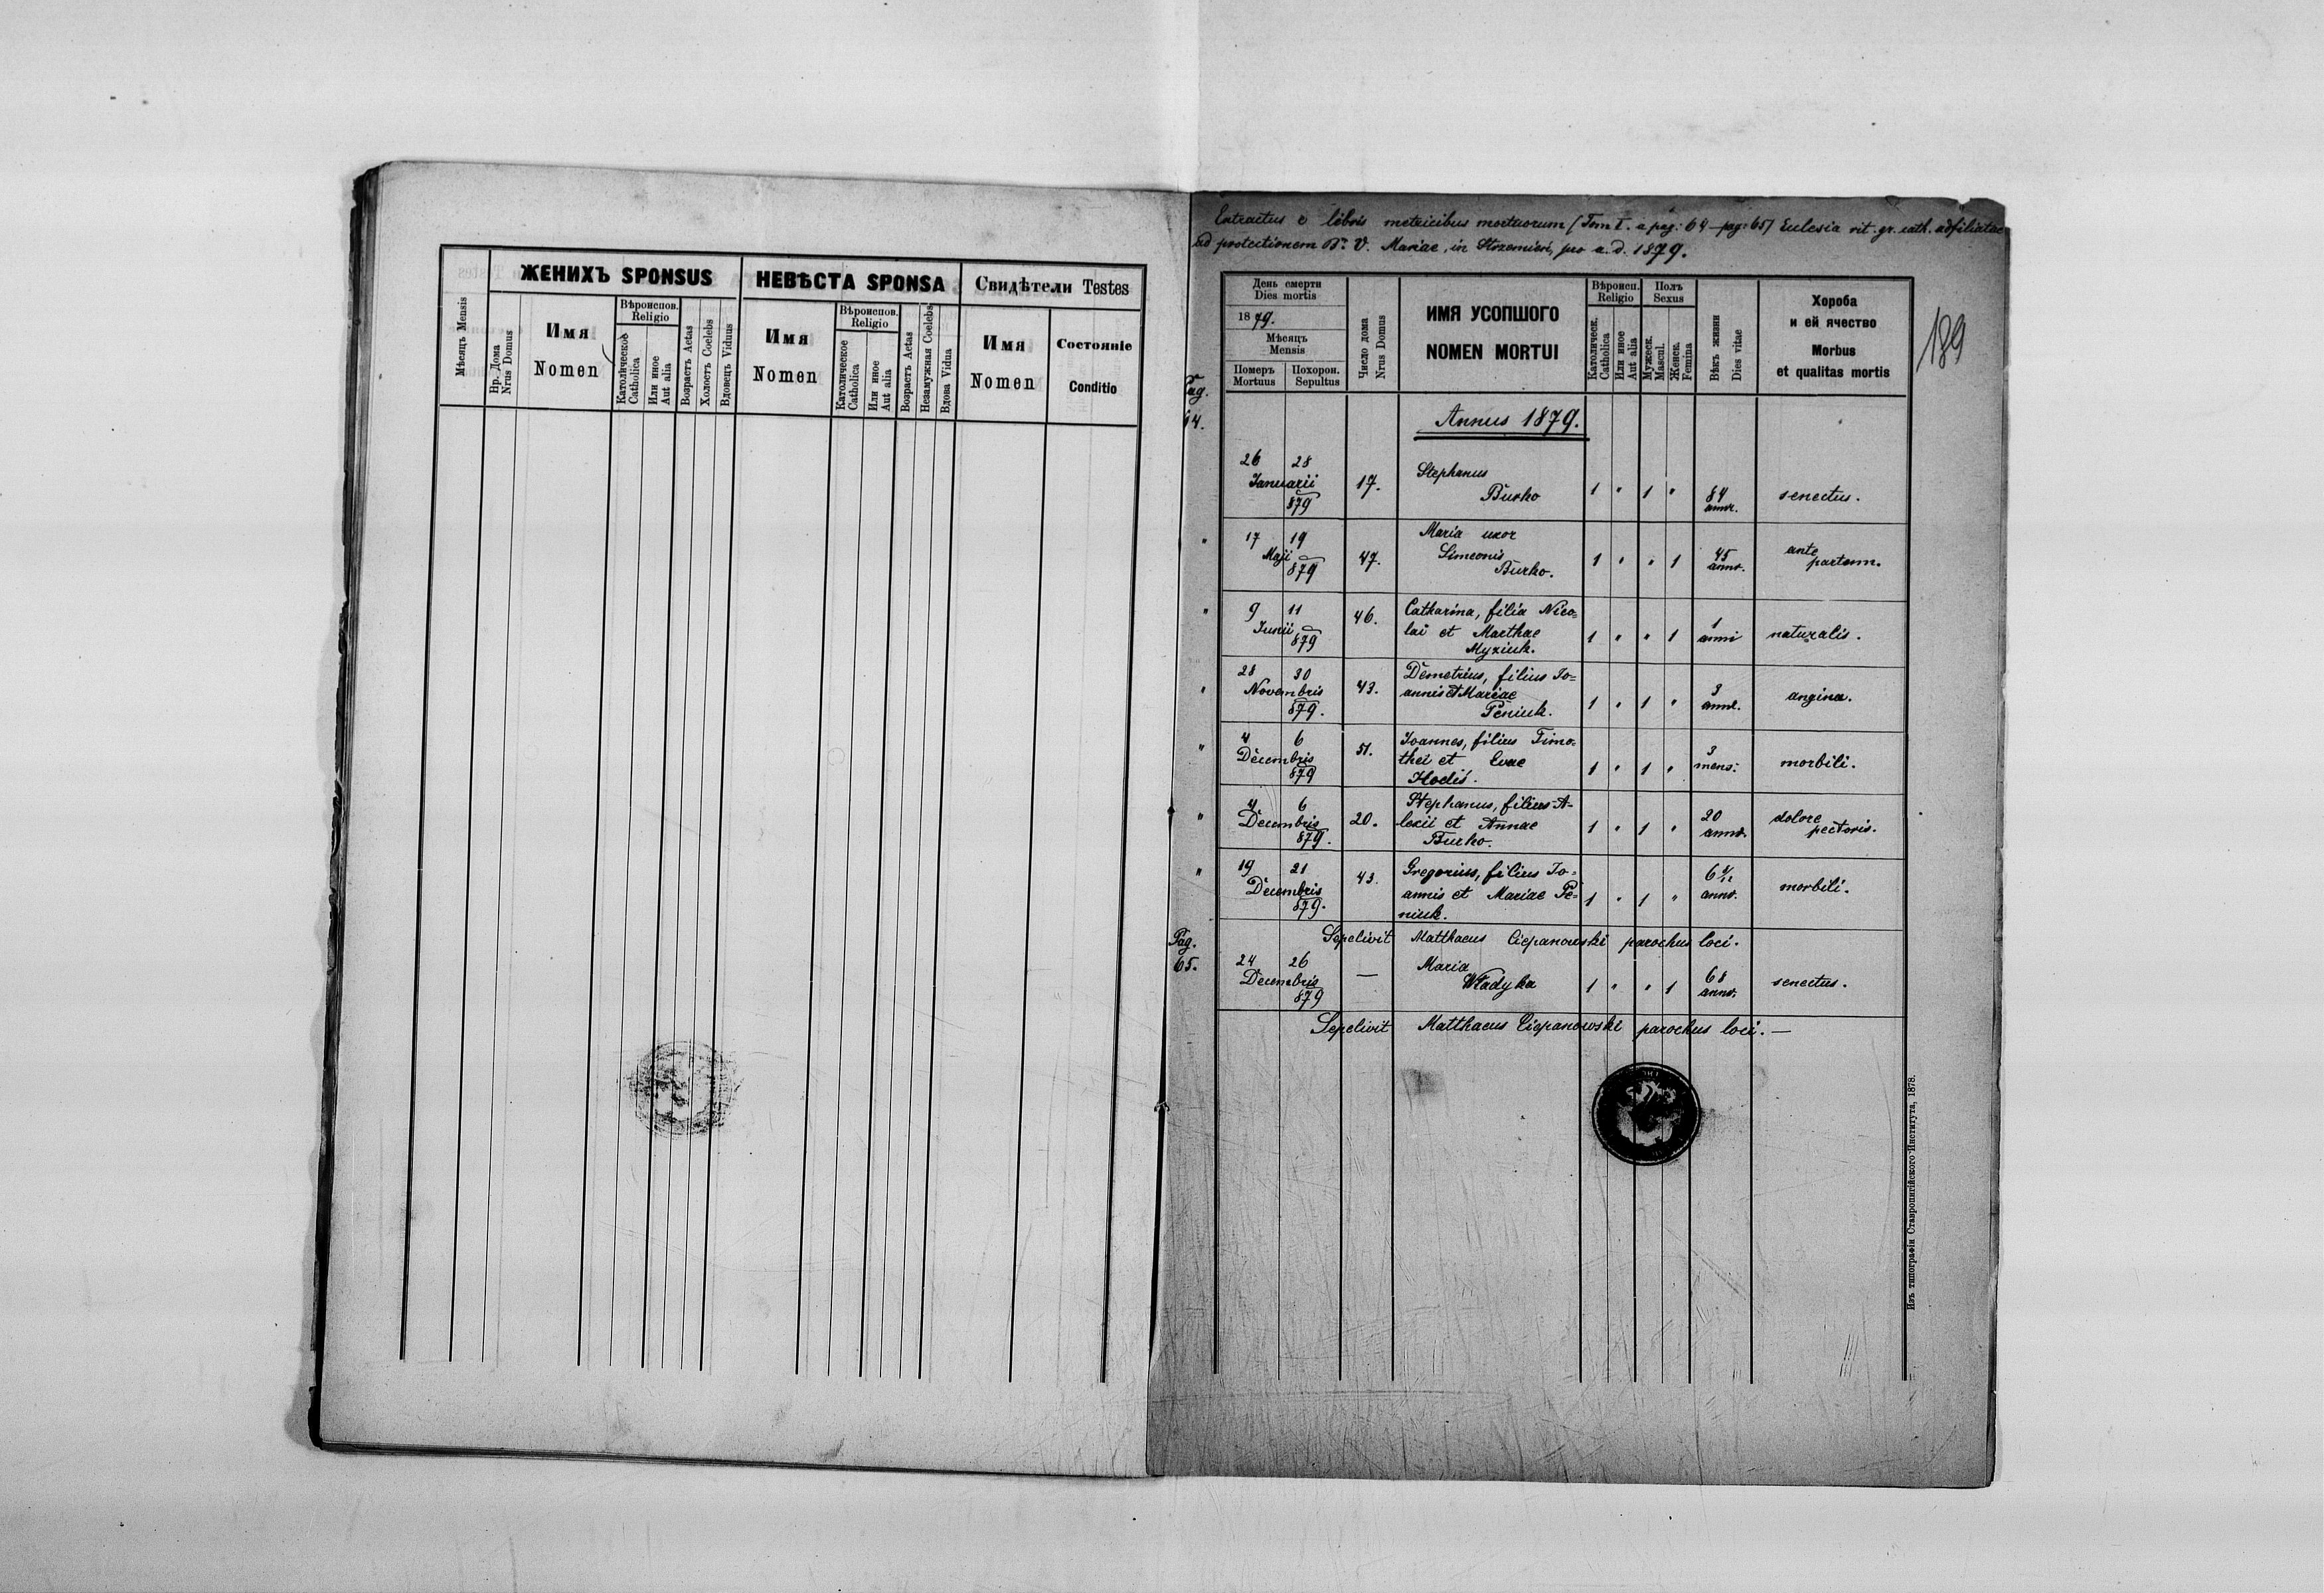 ЖЕНИХЪ SPONSUS
НЕВѢСТА SPONSA
Свидѣтели Testes
Мѣсяцъ Mensis
Нр. Дома
Nrus Domus
Имя
Nomen
Вѣроиспов.
Religio
Католическое
Catholica
Или иное
Aut alia
Возрастъ Aetas
Холостъ Coelebs
Вдовецъ Viduus
Имя
Nomen
Вѣроиспов.
Religio
Католическое
Catholica
Или иное
Aut alia
Возрастъ Aetas
Незамужная Coelebs
Вдова Vidua
Имя
Nomen
Состояніе
Conditio
Extractus e libris metricibus mortuorum (Tom I. a pag: 64 - pag: 65) Eclesia rit. gr. cath. adfiliatae
ad protectionem B. V. Mariae, in pro a. d. 1879.
189
День смерти
Dies mortis
1879.
Мѣсяцъ
Mensis
Померъ
Mortuus
Похорон.
Sepultus
Число дома
Nrus Domus
ИМЯ УСОПШОГО
NOMEN MORTUI
Вѣроисп.
Religio
Католическ.
Catholica
Или иное
Aut alia
Полъ
Sexus
Мужеск.
Mascul.
Женск.
Femina
Вѣкъ жизни
Dies vitae
Хороба
и ей ячество
Morbus
et qualitas mortis
Pag.
64.
Annus 1879.
26 28
Januarii
879
17.
Stephanus
Burko
1 " 1 "
84
annor.
senectus.
" 17 19
Maji
879
47.
Maria uxor
Simeonis
Burko.
1 " " 1
45
annor.
ante
partum.
" 9 11
Junii
879
46.
Catharina, filia Nico=
lai et Marthae
Myziuk.
1 " " 1
1
anni
naturalis.
" 28 30
Novembris
879.
43.
Demetrius, filius Jo=
annis et Mariae
Peniuk.
1 " 1 "
3
anno.
angina.
" 4 6
Decembris
879
51.
Joannes, filius Timo=
thei et Evae
Hodis.
1 " 1 "
3
mens:
morbili.
" 4 6
Decembris
879.
20.
Stephanus, filius A=
lexii et Annae
Burko.
1 " 1 "
20
annor.
dolore
pectoris.
" 19 21
Decembris
879.
43.
Gregorius, filius Jo=
annis et Mariae Pe=
niuk.
1 " 1 "
6
annor.
morbili.
Sepelivit Matthaeus Ciepanowski parochus loci.
Pag.
65.
24 26
Decembris
879
—
Maria
Władyka
1 " " 1
68
annor.
senectus.
Sepelivit Matthaeus Ciepanowski parochus loci. —
Изъ типографіи Ставропигійского Института, 1878.